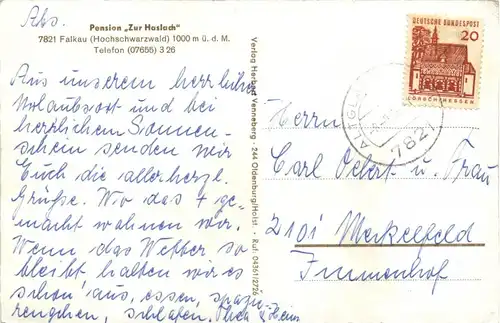 Abs.
Pension „Zur Haslach"
7821 Falkau (Hochschwarzwald) 1000 m ü. d. M.
Telefon (07655) 3 26
Aus unserem herrlichen
Urlaubsort und bei
herrlichem Sonnen-
schein senden wir
Euch die allerherzl.
Grüße. Wo das + ge-
macht wohnen wir.
Wenn das Wetter so
bleibt halten wir es
schon aus, essen, spazie-
rengehen, schlafen.
Verlag Herbert Venneberg - 244 Oldenburg/Holst. - Ruf: 04361/2726
DEUTSCHE BUNDESPOST
20
LORSCH/HESSEN
782
Herrn
Carl Oehert u. Frau
2101 Meckelfeld
Immenhof